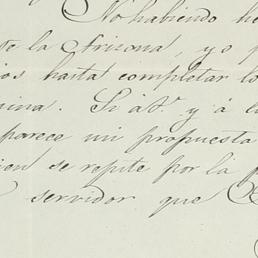 No habiendo he
te la Arizona, yo p
ios hasta completar lo
ina. Si á V. y á l
parece mi propuesta
ien se repite por la p
servidor que